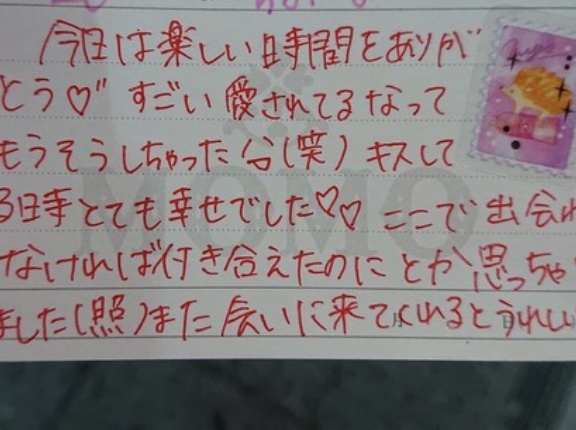 今日は楽しい時間をありが
とう♡" すごい愛されてるなって
もうそうしちゃった(笑) キスして
る時とても幸せでした♡♡ ここで出会わ
なければ付き合えたのにとか思っちゃ
ました(照)また会いに来てくれるとうれしい
MOMO